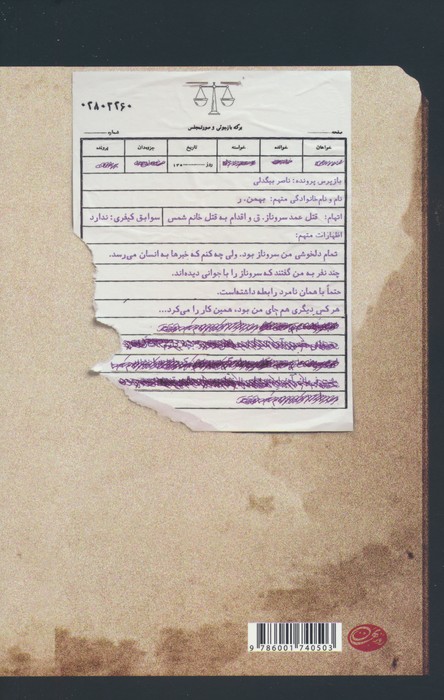 ۰۲۸۰۲۲۶۰
برگه بازجوئی و صورتمجلس
صفحه
شماره
خواهان
خوانده
خواسته
تاریخ
پرونده
بازپرس پرونده: ناصر بیگدلی
نام و نام‌خانوادگی متهم: بهمن. ر
اتهام: قتل عمد سروناز. ق و اقدام به قتل خانم شمس
سوابق کیفری: ندارد
اظهارات متهم:
تمام دلخوشی من سروناز بود. ولی چه کنم که خبرها به انسان می‌رسد.
چند نفر به من گفتند که سروناز را با جوانی دیده‌اند.
حتماً با همان نامرد رابطه داشته‌است.
هر کس دیگری هم جای من بود، همین کار را می‌کرد...
9 786001 740503